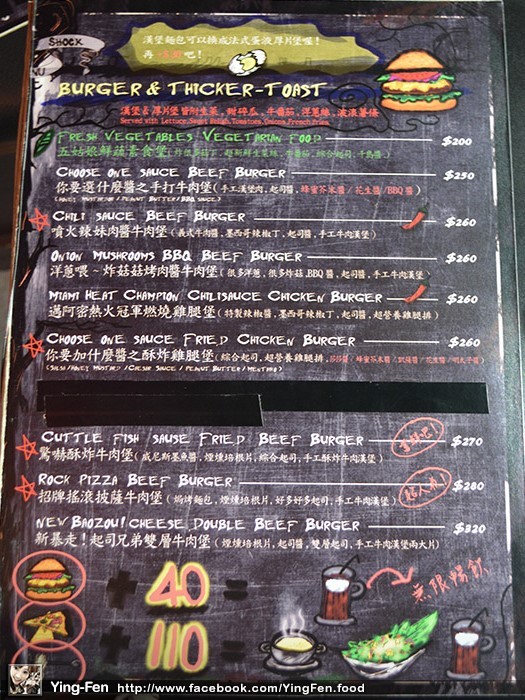 SHOCK
漢堡麵包可以換成法式蛋液厚片堡喔!
BURGER & THICKER-TOAST
漢堡&厚片堡皆附生菜,甜碎瓜,牛番茄,洋蔥絲,波浪薯條
Served with Lettuce, Sweet Relish, Tomatoes, Onions, French Fries
FRESH VEGETABLES VEGETARIAN FOOD $200
五姑娘鮮蔬素食堡
CHOOSE ONE SAUCE BEEF BURGER $250
你要選什麼醬之手打牛肉堡(手工漢堡肉,起司醬,蜂蜜芥末醬/花生醬/BBQ醬)
(HONEY MUSTARD/PEANUT BUTTER/BBQ SAUCE)
CHILI SAUCE BEEF BURGER $260
噴火辣妹肉醬牛肉堡(義式牛肉醬,墨西哥辣椒丁,起司醬,手工牛肉漢堡)
ONION MUSHROOMS BBQ BEEF BURGER $260
洋蔥喂~炸菇菇烤肉醬牛肉堡(很多洋蔥,很多炸菇,BBQ醬,起司醬,手工牛肉漢堡)
MIAMI HEAT CHAMPION CHILISAUCE CHICKEN BURGER $260
邁阿密熱火冠軍燃燒雞腿堡(特製辣椒醬,墨西哥辣椒丁,起司醬,超營養雞腿排)
CHOOSE ONE SAUCE FRIED CHICKEN BURGER $260
你要加什麼醬之酥炸雞腿堡(綜合起司,超營養雞腿排,莎莎醬/蜂蜜芥末醬/凱薩醬/花生醬/明太子醬)
(SALSA/HONEY MUSTARD/CAESAR SAUCE/PEANUT BUTTER/MENTAIKO)
CUTTLE FISH SAUSE FRIED BEEF BURGER $270
驚嚇酥炸牛肉堡(威尼斯墨魚醬,煙燻培根片,綜合起司,手工酥炸牛肉漢堡)
ROCK PIZZA BEEF BURGER $280
招牌搖滾披薩牛肉堡(焗烤麵包,煙燻培根片,好多好多起司,手工牛肉漢堡)
NEW BAOZOU! CHEESE DOUBLE BEEF BURGER $320
新暴走!起司兄弟雙層牛肉堡(煙燻培根片,起司醬,雙層起司,手工牛肉漢堡兩大片)
+ 40 =
無限暢飲
+ 110 =
Ying-Fen http://www.facebook.com/YingFen.food